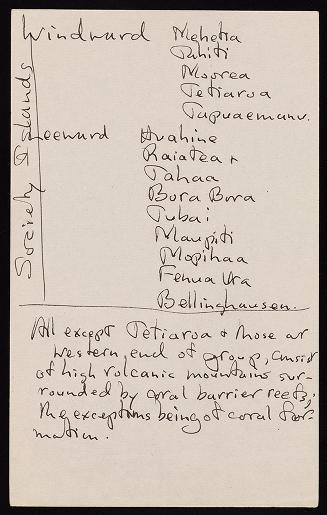 Society Islands
Windward Mehetia
Tahiti
Moorea
Tetiaroa
Tapuaemanu.
Leeward Huahine
Raiatea +
Tahaa
Bora Bora
Tubai
Maupiti
Mopihaa
Fenua Ura
Bellinghausen.
All except Tetiaroa & those at
western end of group, consist
of high volcanic mountains sur-
rounded by coral barrier reefs,
the exceptions being of coral for-
mation.